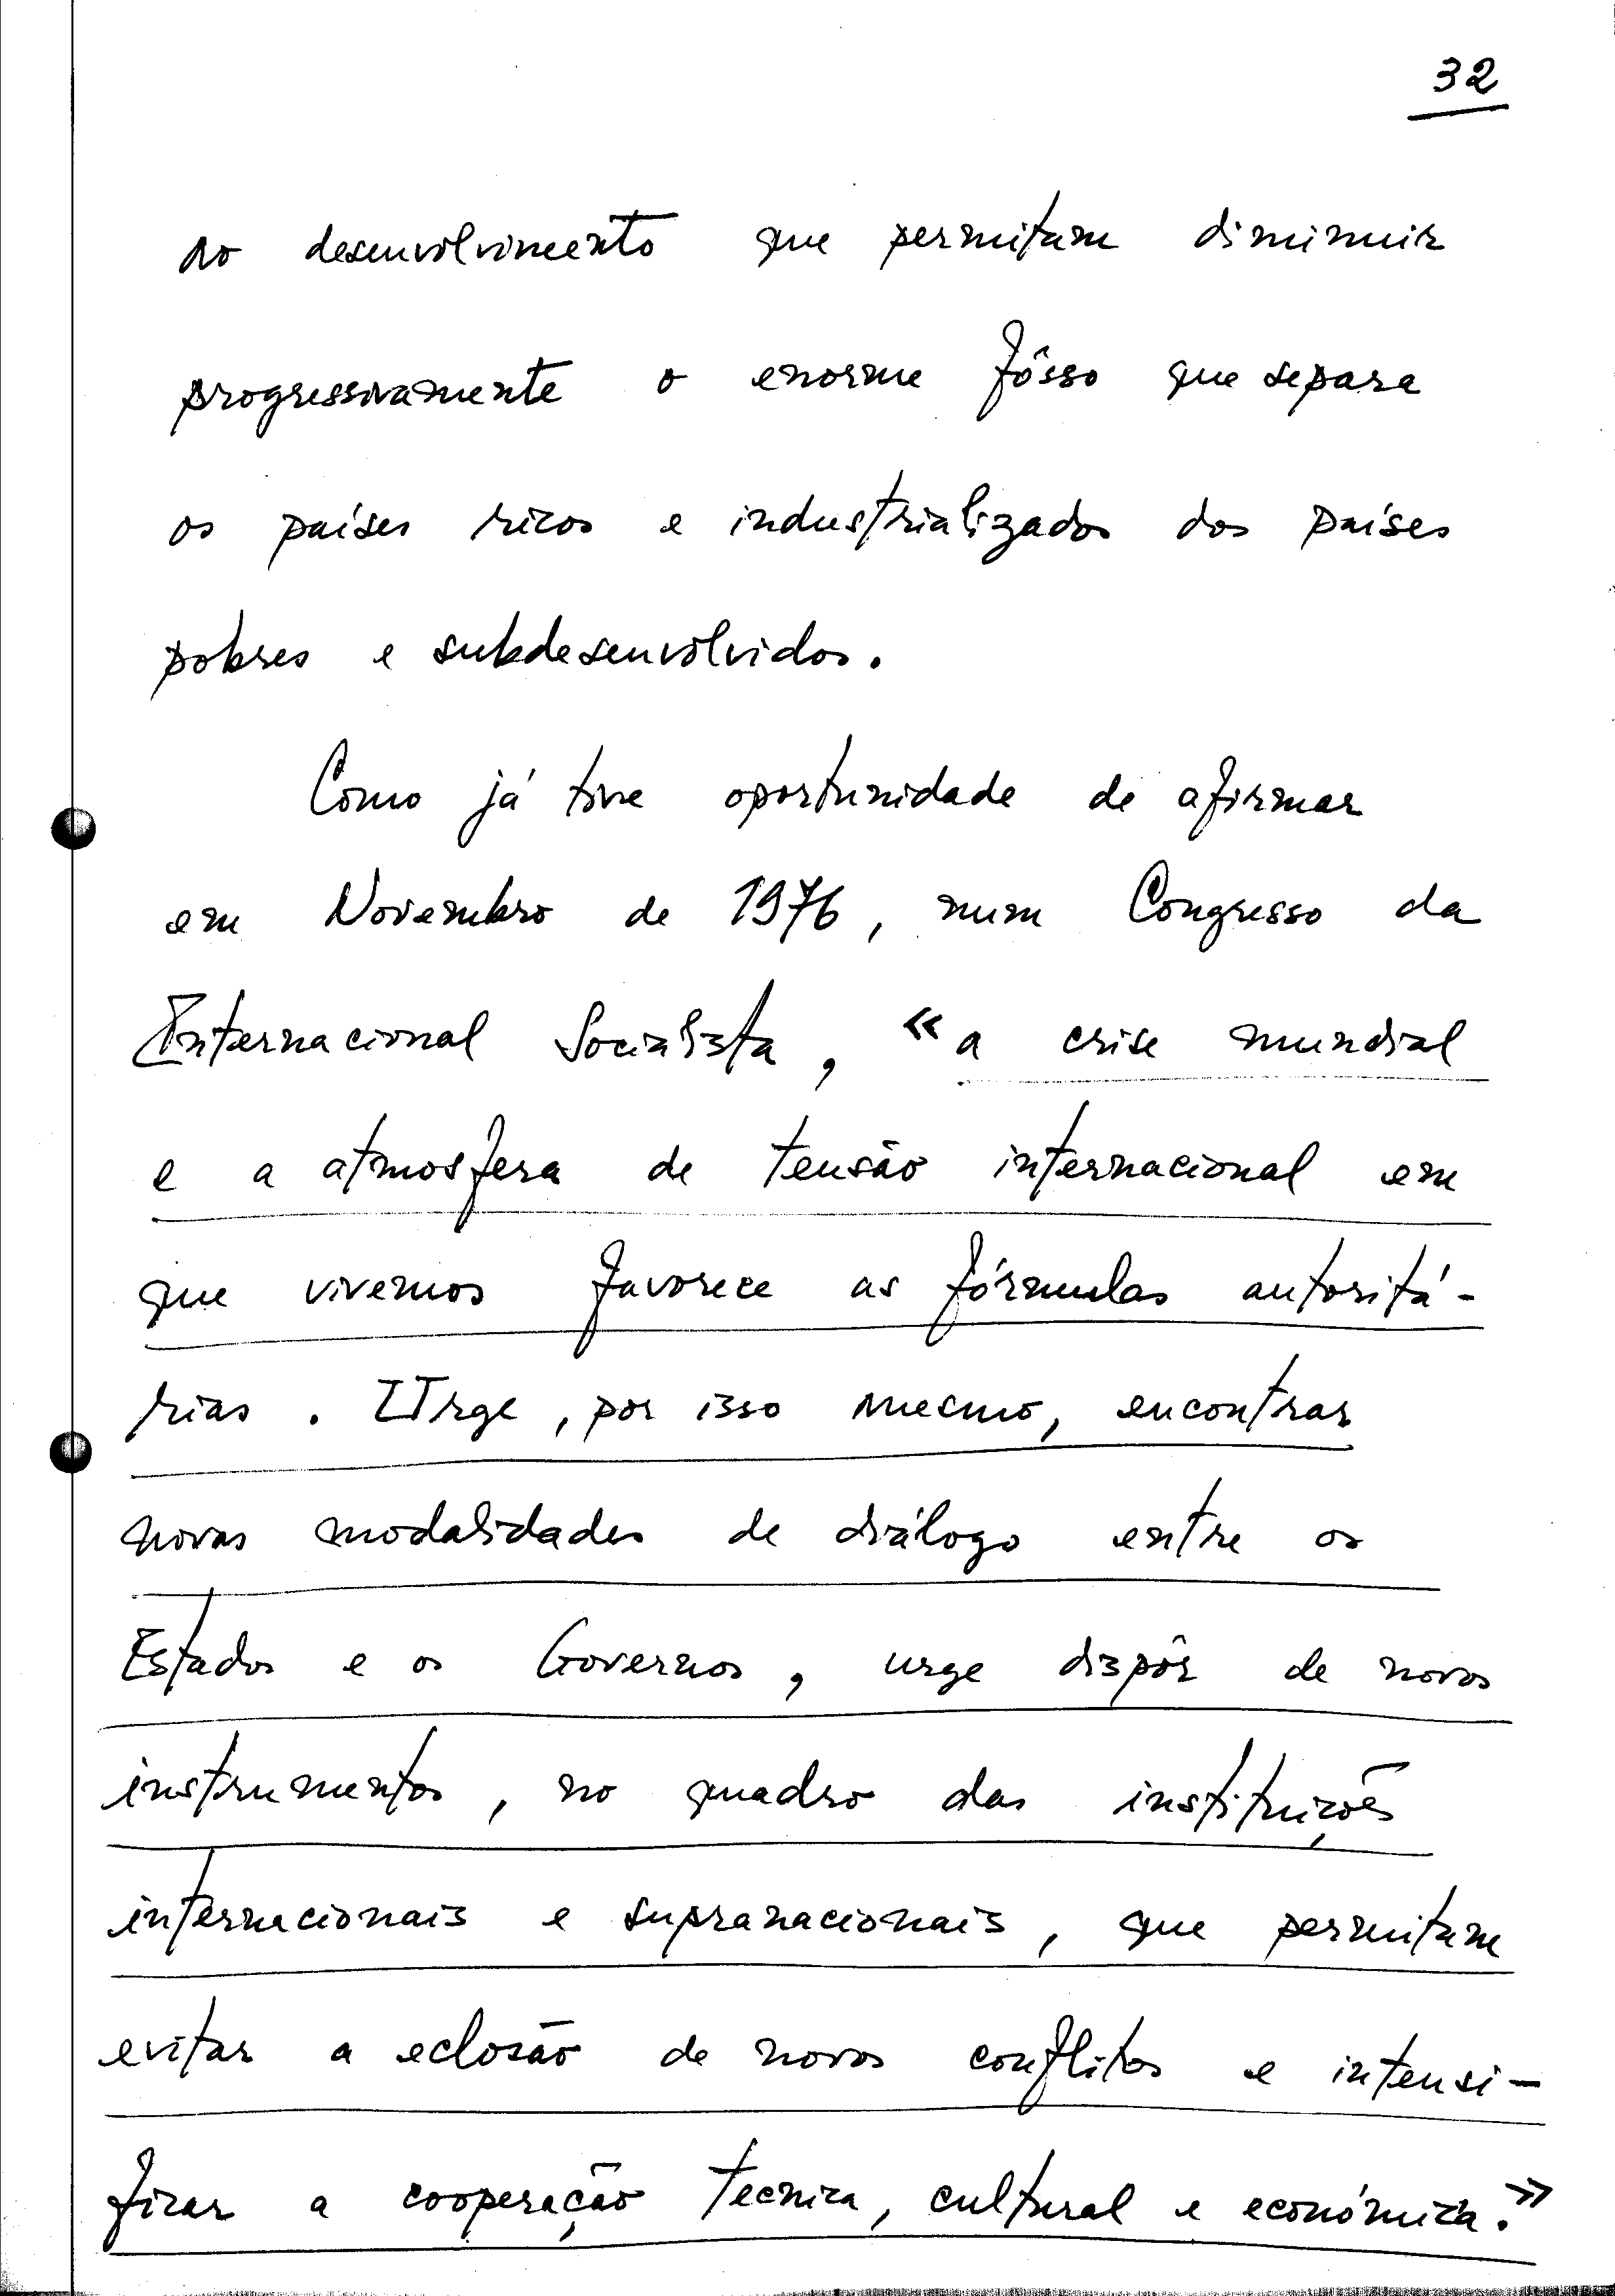 32
ao desenvolvimento que permitam diminuir
progressivamente o enorme fôsso que separa
os países ricos e industrializados dos países
pobres e subdesenvolvidos.
Como já tive oportunidade de afirmar
em Novembro de 1976, num Congresso da
Internacional Socialista, «a crise mundial
e a atmosfera de tensão internacional em
que vivemos favorece as fórmulas autoritá-
rias. Urge, por isso mesmo, encontrar
novas modalidades de diálogo entre os
Estados e os Governos, urge dispôr de novos
instrumentos, no quadro das instituições
internacionais e supranacionais, que permitam
evitar a eclosão de novos conflitos e intensi-
ficar a cooperação tecnica, cultural e económica.»